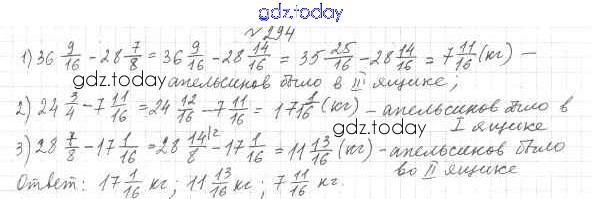 gdz.today
№294
1) 36 9/16 - 28 7/8 = 36 9/16 - 28 14/16 = 35 25/16 - 28 14/16 = 7 11/16 (кг) -
gdz.today апельсинов было в III ящике;
2) 24 3/4 - 7 11/16 = 24 12/16 - 7 11/16 = 17 1/16 (кг) - апельсинов было в
gdz.today I ящике
3) 28 7/8 - 17 1/16 = 28 14\2/8 - 17 1/16 = 11 13/16 (кг) - апельсинов было
во II ящике
Ответ: 17 1/16 кг; 11 13/16 кг; 7 11/16 кг.